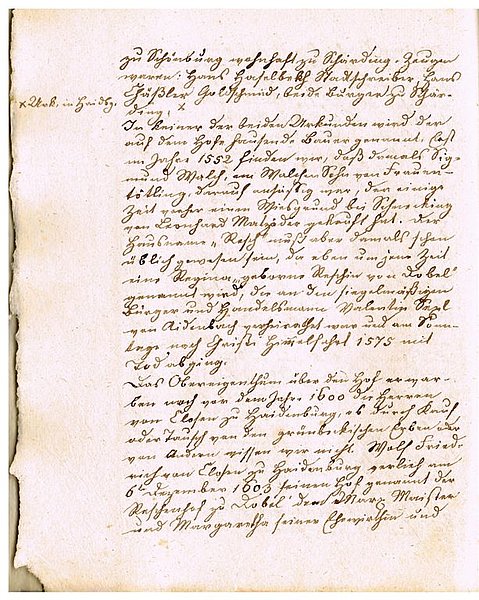 zu Schönburg wohnhaft zu Schärding. Zeugen
waren: Hans Haselbekh Stadtschreiber, Hans
Goldschmid, beide Bürger zu Schär-
ding. x
x Urk. in Haidbg.
In keiner der beiden Urkunden wird der
auf dem Hofe hausende Bauer genannt, erst
im Jahre 1552 finden wir, daß damals Sig-
mund Walch, ein Walchen Sohn von Frauen-
tötling, darauf ansässig war, der einige
Zeit vorher einen Wiesgrund bei Schmeking
von Leonhard gekauft hat. Der
Hausname „Resch“ muß aber damals schon
üblich gewesen sein, da eben um jene Zeit
eine Regina, geborne Reschin von Dobel
genannt wird, die an den siegelmäßigen
Bürger und Handelsmann Valentin
von Aidenbach verheirathet war und am Sonn-
tage nach Christi Himmelfahrt 1575 mit
Tod abging.
Das Obereigenthum über den Hof erwar-
ben noch vor dem Jahre 1600 die Herren
von Closen zu Haidenburg, ob durch Kauf
oder Tausch von den grünbekischen Erben oder
von Andern wissen wir nicht. Wolf Fried-
rich von Closen zu Haidenburg verlieh am
6t Dezember 1603 seinen Hof genannt der
Reschenhof zu Dobel dem Marx Maister
und Margaretha seiner Ehewirthin und